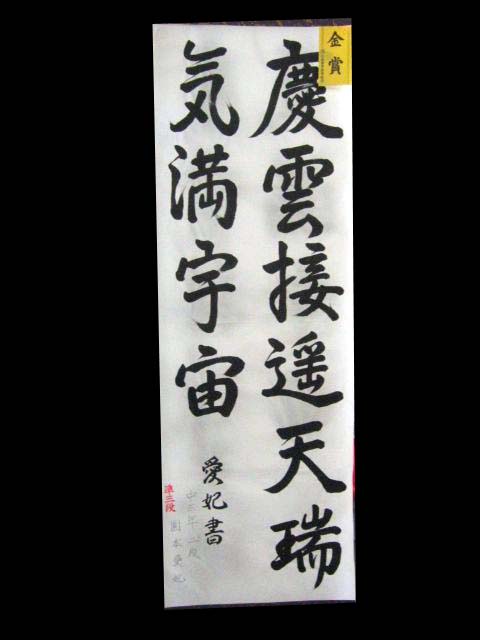 金賞
慶雲接遥天瑞
気満宇宙
愛妃書
準三段
中三年 二段